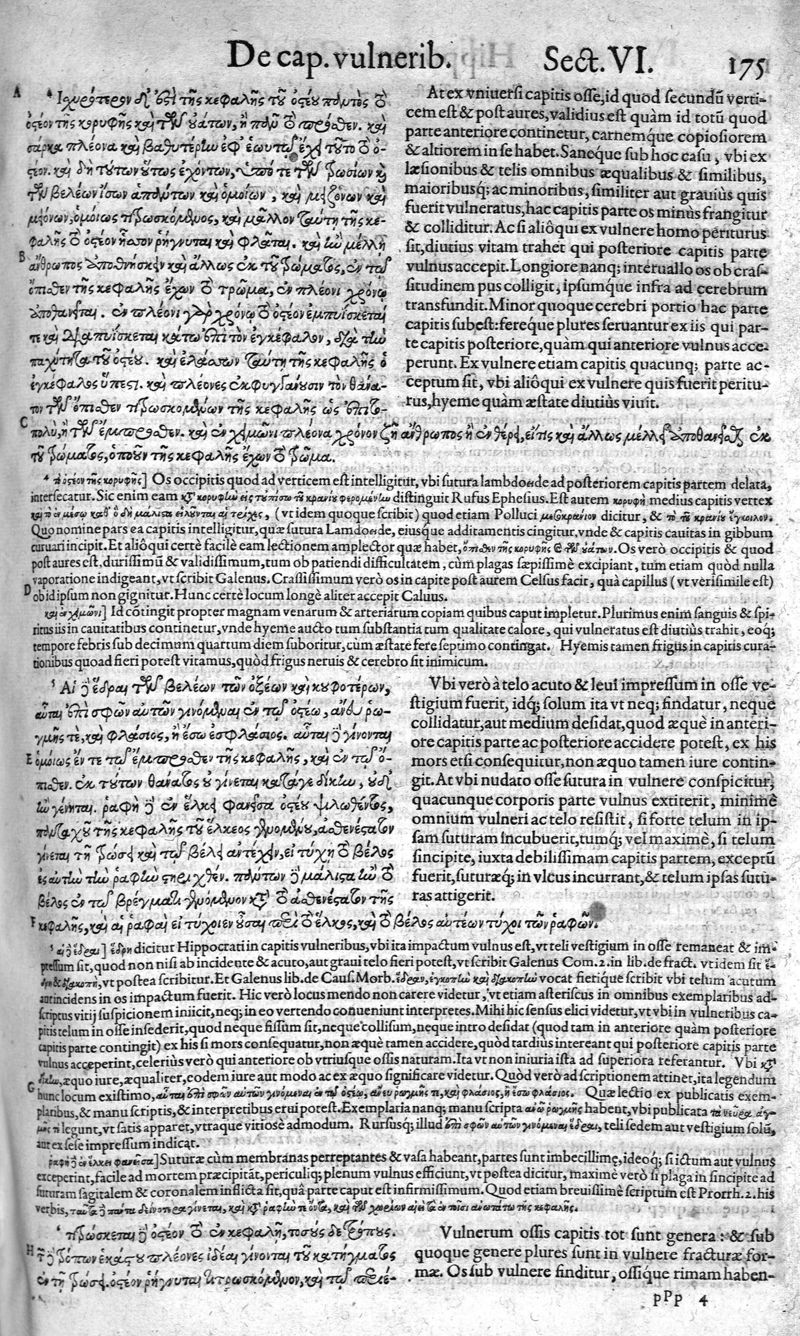 De cap. vulnerib. Sect. VI. 175
A
Ἰσχυρότερον δ' ἐστὶ τῆς κεφαλῆς τοῦ ὀστέου παντὸς τὸ
ὀστέον τῆς κορυφῆς καὶ τῶν οὐάτων, ἢ πᾶν τὸ πρόσθεν. καὶ
σάρκα πλέονα καὶ βαθυτέρην ἐφ' ἑωυτοῦ ἔχει τοῦτο τὸ ὀ-
στέον. καὶ δὴ τούτων οὕτως ἐχόντων, ὑπό τε τῶν τρωσίων καὶ
τῶν βελέων ἴσων ἁπάντων καὶ ὁμοίων, καὶ μειζόνων καὶ
μειόνων, ὁμοίως τιτρωσκόμενος, καὶ μᾶλλον ταύτῃ τῆς κε-
φαλῆς τὸ ὀστέον ἧσσον ῥήγνυται καὶ φλᾶται. καὶ ἢν μέλλῃ
B
ἄνθρωπος ἀποθνήσκειν καὶ ἄλλως ἐκ τοῦ τρώματος, ἐν τῷ
ὄπισθεν τῆς κεφαλῆς ἔχων τὸ τρῶμα, ἐν πλέονι χρόνῳ
ἀποθανεῖται. ἐν πλέονι γὰρ χρόνῳ τὸ ὀστέον ἐμπυΐσκεταί
τε καὶ διαπυΐσκεται κάτω ἐπὶ τὸν ἐγκέφαλον, διὰ τὴν
παχύτητα τοῦ ὀστέου. καὶ ἐλάσσων ταύτῃ τῆς κεφαλῆς ὁ
ἐγκέφαλος ὕπεστι. καὶ πλέονες ἐκφυγγάνουσιν τὸν θάνα-
τον τῶν ὄπισθεν τιτρωσκομένων τῆς κεφαλῆς ὡς ἐπιτο-
C
πολὺ, ἢ τῶν ἔμπροσθεν. καὶ ἐν χειμῶνι πλέονα χρόνον ζῇ ἄνθρωπος ἢ ἐν θέρει, εἴ τις καὶ ἄλλως μέλλει ἀποθανεῖσθαι ἐκ
τοῦ τρώματος, ὅπου τῆς κεφαλῆς ἔχων τὸ τρῶμα.
At ex vniuersi capitis osse, id quod secundū verti-
cem est & post aures, validius est quàm id totū quod
parte anteriore continetur, carnemque copiosiorem
& altiorem in se habet. Saneque sub hoc casu, vbi ex
læsionibus & telis omnibus æqualibus & similibus,
maioribusq; ac minoribus, similiter aut grauiùs quis
fuerit vulneratus, hac capitis parte os minùs frangitur
& colliditur. Ac si alioqui ex vulnere homo periturus
sit, diutius vitam trahet qui posteriore capitis parte
vulnus accepit. Longiore nanq; interuallo os ob cras-
situdinem pus colligit, ipsumque infra ad cerebrum
transfundit. Minor quoque cerebri portio hac parte
capitis subest: fereque plures seruantur ex iis qui par-
te capitis posteriore, quàm qui anteriore vulnus acce-
perunt. Ex vulnere etiam capitis quacunq; parte ac-
ceptum sit, vbi alioqui ex vulnere quis fuerit peritu-
rus, hyeme quàm æstate diutiùs viuit.
τὸ ὀστέον τῆς κορυφῆς] Os occipitis quod ad verticem est intelligitur, vbi sutura lambdoede ad posteriorem capitis partem delata,
intersecatur. Sic enim eam distinguit Rufus Ephesius. Est autem κορυφὴ medius capitis vertex
(vt idem quoque scribit) quod etiam Polluci μεσοκράνιον dicitur, &
Quo nomine pars ea capitis intelligitur, quæ sutura Lamdoede, eiusque additamentis cingitur, vnde & capitis cauitas in gibbum
curuari incipit. Et alioqui certè facilè eam lectionem amplector quæ habet, ὄπισθεν τῆς κορυφῆς Os verò occipitis & quod
post aures est, durissimū & validissimum, tum ob patiendi difficultatem, cùm plagas sæpissimè excipiant, tum etiam quòd nulla
vaporatione indigeant, vt scribit Galenus. Crassissimum verò os in capite post aurem Celsus facit, quà capillus (vt verisimile est)
D
ob id ipsum non gignitur. Hunc certè locum longè aliter accepit Caluus.
καὶ ἐν χειμῶνι] Id cōtingit propter magnam venarum & arteriarum copiam quibus caput impletur. Plurimus enim sanguis & spi-
ritus iis in cauitatibus continetur, vnde hyeme aucto tum substantia tum qualitate calore, qui vulneratus est diutiùs trahit, eoq;
tempore febris sub decimum quartum diem suboritur, cùm æstate fere septimo contingat. Hyemis tamen frigus in capitis cura-
tionibus quoad fieri potest vitamus, quòd frigus neruis & cerebro sit inimicum.
Αἱ δὲ ἕδραι τῶν βελέων τῶν ὀξέων καὶ κουφοτέρων,
αὗται ἐπὶ σφῶν αὐτῶν γινόμεναι ἐν τῷ ὀστέῳ, ἄνευ ῥω-
γμῆς τε, καὶ φλάσιος, ἢ ἔσω ἐσφλάσιος. αὗται δὲ γίνονται
E
ὁμοίως ἔν τε τῷ ἔμπροσθεν τῆς κεφαλῆς, καὶ ἐν τῷ ὄ-
πισθεν. ἐκ τούτων θάνατος οὐ γίνεται κατά γε δίκην, οὐδ'
ἢν γένηται. ῥαφὴ δὲ ἐν ἕλκει φανεῖσα ὀστέου ψιλωθέντος,
πανταχοῦ τῆς κεφαλῆς τοῦ ἕλκεος γενομένου, ἀσθενέστατον
γίνεται τῇ τρώσει καὶ τῷ βέλει ἀντέχειν, εἰ τύχῃ τὸ βέλος
ἐς αὐτὴν τὴν ῥαφὴν στηριχθέν. πάντων δὲ μάλιστα ἢν τὸ
βέλος ἐν τῷ βρέγματι γενόμενον κατὰ τὸ ἀσθενέστατον τῆς
F
κεφαλῆς, καὶ αἱ ῥαφαὶ εἰ τύχοιεν ἐοῦσαι περὶ τὸ ἕλκος, καὶ τὸ βέλος αὐτέων τύχοι τῶν ῥαφῶν.
Vbi verò à telo acuto & leui impressum in osse ve-
stigium fuerit, idq; solum ita vt neq; findatur, neque
collidatur, aut medium desidat, quod æquè in anteri-
ore capitis parte ac posteriore accidere potest, ex his
mors etsi consequitur, non æquo tamen iure contin-
git. At vbi nudato osse sutura in vulnere conspicitur,
quacunque corporis parte vulnus extiterit, minimè
omnium vulneri ac telo resistit, si forte telum in ip-
sam suturam incubuerit, tumq; vel maximè, si telum
sincipite, iuxta debilissimam capitis partem, exceptū
fuerit, suturæq; in vlcus incurrant, & telum ipsas sutu-
ras attigerit.
αἱ δὲ ἕδραι] ἕδρη dicitur Hippocrati in capitis vulneribus, vbi ita impactum vulnus est, vt teli vestigium in osse remaneat & im-
pressum sit, quod non nisi ab incidente & acuto, aut graui telo fieri potest, vt scribit Galenus Com. 2. in lib. de fract. vt idem sit
vt postea scribitur. Et Galenus lib. de Caus. Morb. ἕδραν, ἐγκοπὴν καὶ διακοπὴν vocat fierique scribit vbi telum acutum
aut incidens in os impactum fuerit. Hic verò locus mendo non carere videtur, vt etiam asteriscus in omnibus exemplaribus ad-
scriptus vitij suspicionem iniicit, neq; in eo vertendo conueniunt interpretes. Mihi hic sensus elici videtur, vt vbi in vulneribus ca-
pitis telum in osse insederit, quod neque fissum sit, neque collisum, neque intro desidat (quod tam in anteriore quàm posteriore
capitis parte contingit) ex his si mors consequatur, non æquè tamen accidere, quòd tardiùs intereant qui posteriore capitis parte
vulnus acceperint, celeriùs verò qui anteriore ob vtriusque ossis naturam. Ita vt non iniuria ista ad superiora referantur. Vbi
G
δίκην, æquo iure, æqualiter, eodem iure aut modo ac ex æquo significare videtur. Quòd verò ad scriptionem attinet, ita legendum
hunc locum existimo, αὗται ἐπὶ σφῶν αὐτῶν γινόμεναι ἐν τῷ ὀστέῳ, ἄνευ ῥωγμῆς τε, καὶ φλάσιος, ἢ ἔσω φλάσιος. Quæ lectio ex publicatis exem-
plaribus, & manu scriptis, & interpretibus erui potest. Exemplaria nanq; manu scripta habent, vbi publicata
legunt, vt satis apparet, vtraque vitiose admodum. Rursusq; illud ἐπὶ σφῶν αὐτῶν γινόμεναι ἕδραι, teli sedem aut vestigium solū,
aut ex sese impressum indicat.
ῥαφὴ δὲ ἐν ἕλκει φανεῖσα] Suturæ cùm membranas perreptantes & vasa habeant, partes sunt imbecillime, ideoq; si ictum aut vulnus
exceperint, facile ad mortem præcipitāt, periculiq; plenum vulnus efficiunt, vt postea dicitur, maximè verò si plaga in sincipite ad
suturam sagitalem & coronalem inflicta sit, quâ parte caput est infirmissimum. Quod etiam breuissimè scriptum est Prorrh. 2. his
verbis,
τιτρώσκεται δὲ ὀστέον τὸ ἐν κεφαλῇ, τοσούσδε τρόπους.
H
τῶν δὲ τρόπων ἑκάστου πλέονες ἰδέαι γίνονται τοῦ κατήγματος
ἐν τῇ τρώσει. ὀστέον ῥήγνυται τιτρωσκόμενον, καὶ τῷ περιέ-
Vulnerum ossis capitis tot sunt genera: & sub
quoque genere plures sunt in vulnere fracturæ for-
mæ. Os sub vulnere finditur, ossique rimam haben-
pPp 4